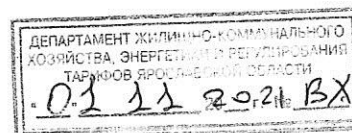 ДЕПАРТАМЕНТ ЖИЛИЩНО-КОММУНАЛЬНОГО
ХОЗЯЙСТВА, ЭНЕРГЕТИКИ И РЕГУЛИРОВАНИЯ
ТАРИФОВ ЯРОСЛАВСКОЙ ОБЛАСТИ
01 11 2021 № ВХ